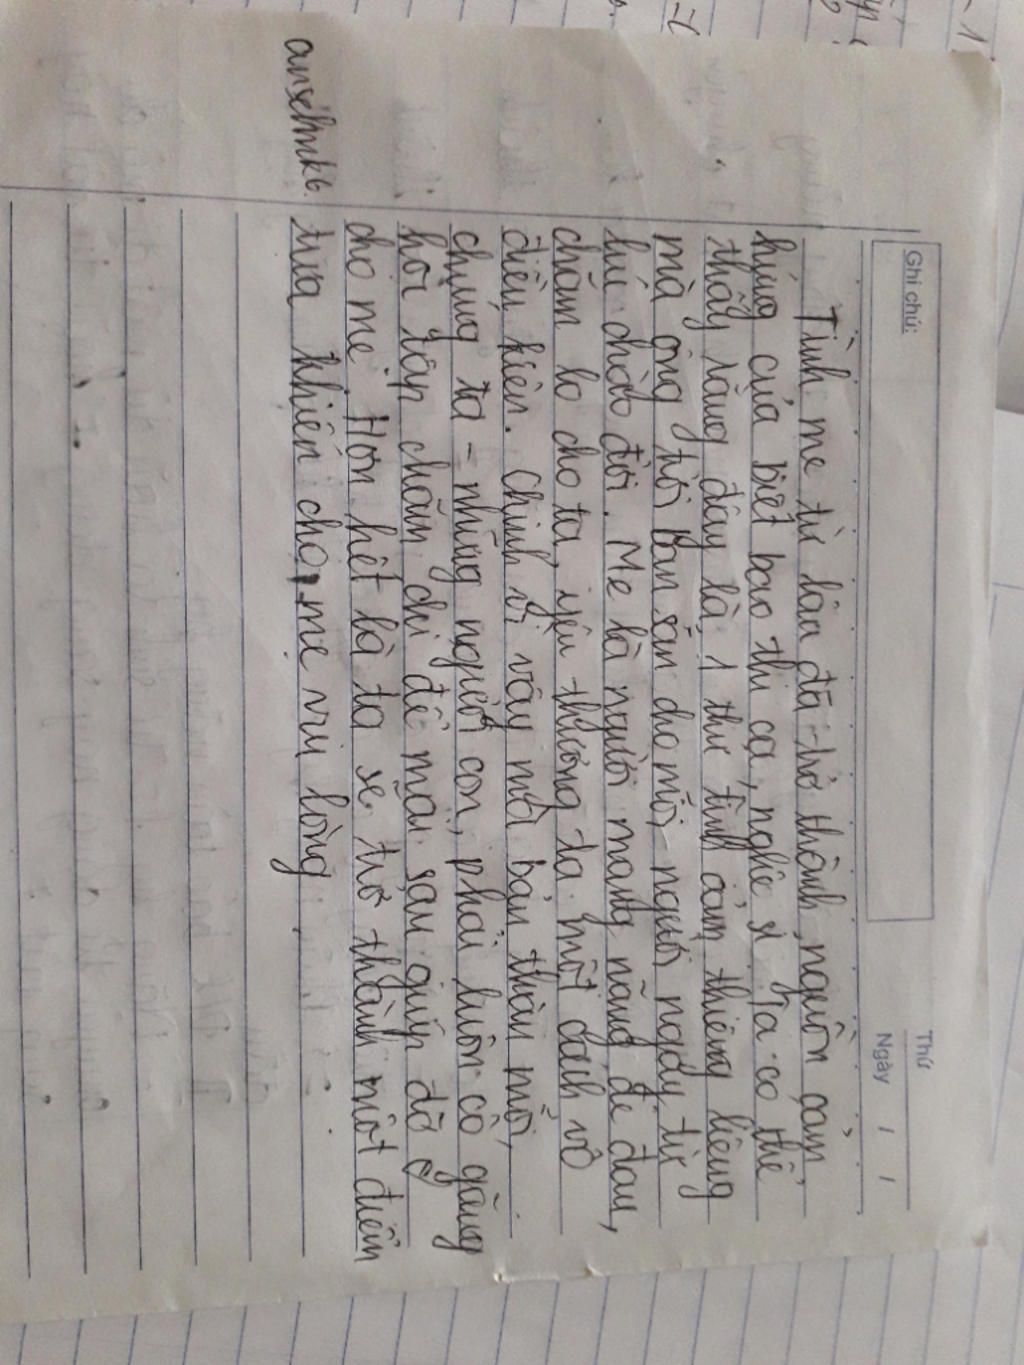 Ghi chú:
Thứ
Ngày / /
Tình mẹ từ lâu đã trở thành nguồn cảm
hứng của biết bao thi ca, nghệ sĩ. Ta có thể
thấy rằng đây là 1 thứ tình cảm thiêng liêng
mà ông trời ban sẵn cho mỗi người ngay từ
lúc chào đời. Mẹ là người mang nặng đẻ đau,
chăm lo cho ta, yêu thương ta một cách vô
điều kiện. Chính vì vậy mỗi bản thân mỗi
chúng ta - những người con, phải luôn cố gắng
học tập chăm chỉ để mai sau giúp đỡ
cho mẹ. Hơn hết là ta sẽ trở thành một điểm
tựa khiến cha, mẹ vui lòng